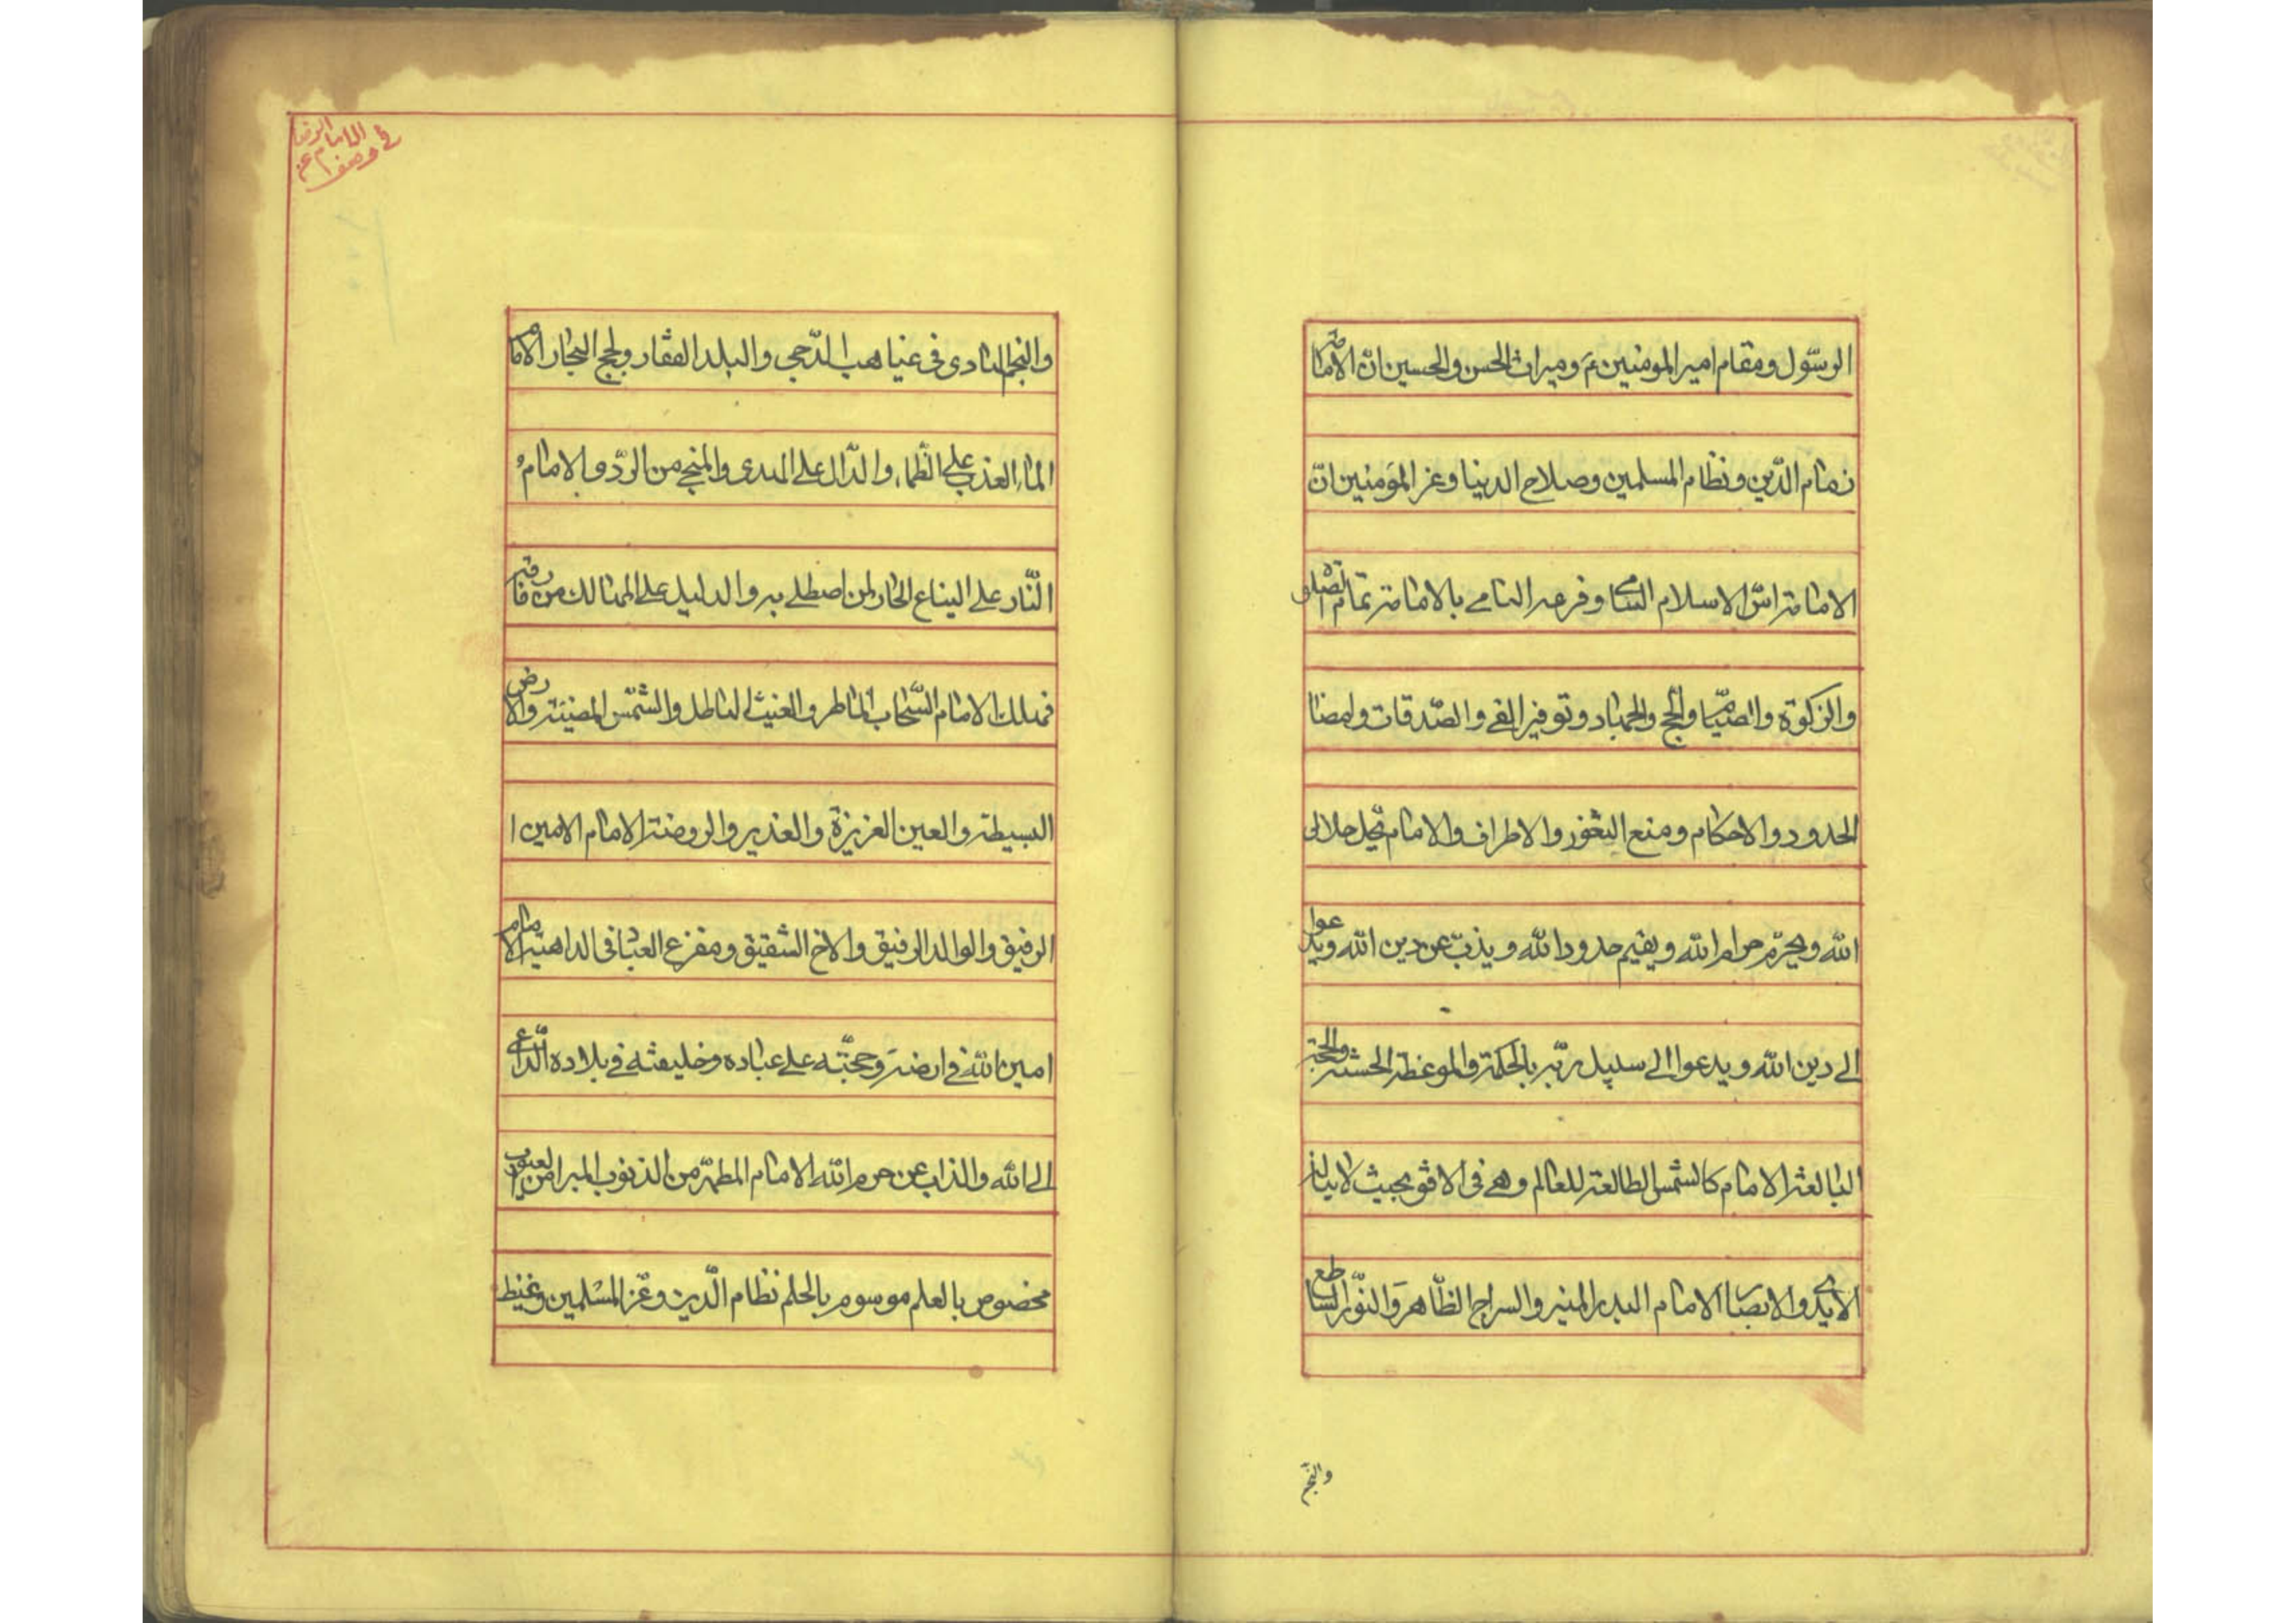 الرسّول ومقام امير المومنين ع وميراث الحسن والحسين انّ الامامة
زمام الدّين ونظام المسلمين وصلاح الدينا وعز المؤمنين انّ
الامامة اسّ الاسلام النامى وفرعه السامے بالامامة تمام الصّلوة
والزكوة والصّيام والحج والجهاد وتوفير الفے والصّدقات وامضا
الحدود والاحكام ومنع الثغور والاطراف والامام يحل حلال
الله ويحرّم حرام الله ويقيم حدود الله ويذبّ عن دين الله ويدعوا
الے دين الله ويدعوا الے سبيل ربّه بالحكمة والموعظة الحسنة والحجة
البالغة الامام كالشمس الطالعة للعالم وهے فى الافق بحيث لا ينالها
الايدے والابصار الامام البدر المنير والسراج الظّاهر والنّور الساطع
والنّجم
فى وصف الامام عن الرضا
والنجم الهادى فى غياهب الدّجى والبلد القفار ولجج البحار الامام
الماء العذب على الظّماء والدّال على الهدى والمنجے من الردّى والامام
النّار على اليفاع الحار لمن اصطلے به والدليل على المهالك من فارقه
فهلك الامام السّحاب الماطر والغيث الهاطل والشّمس المضيئة والارض
البسيطة والعين الغزيزة والغدير والروضة الامام الامين ا
الرفيق والوالد الرفيق والاخ الشقيق ومفزع العباد فى الداهية الامام
امين الله فے ارضه وحجّته على عباده وخليفته فے بلاده الدّاعے
الے الله والذاب عن حرم الله الامام المطهّر من الذنوب المبرا من العيوب
مخصوص بالعلم موسوم بالحلم نظام الّدين وعّز المسلمين وغيظ